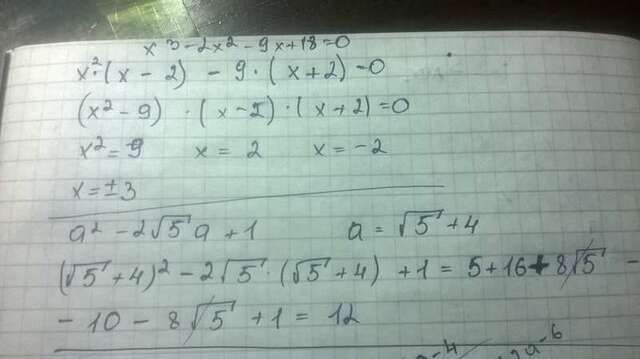 x³ - 2x² - 9x + 18 = 0
x²·(x - 2) - 9·(x + 2) = 0
(x² - 9) · (x - 2) · (x + 2) = 0
x² = 9 x = 2 x = -2
x = ±3
a² - 2√5 a + 1 a = √5 + 4
(√5 + 4)² - 2√5 · (√5 + 4) + 1 = 5 + 16 + 8√5 -
- 10 - 8√5 + 1 = 12
a⁻⁴ a⁻⁶